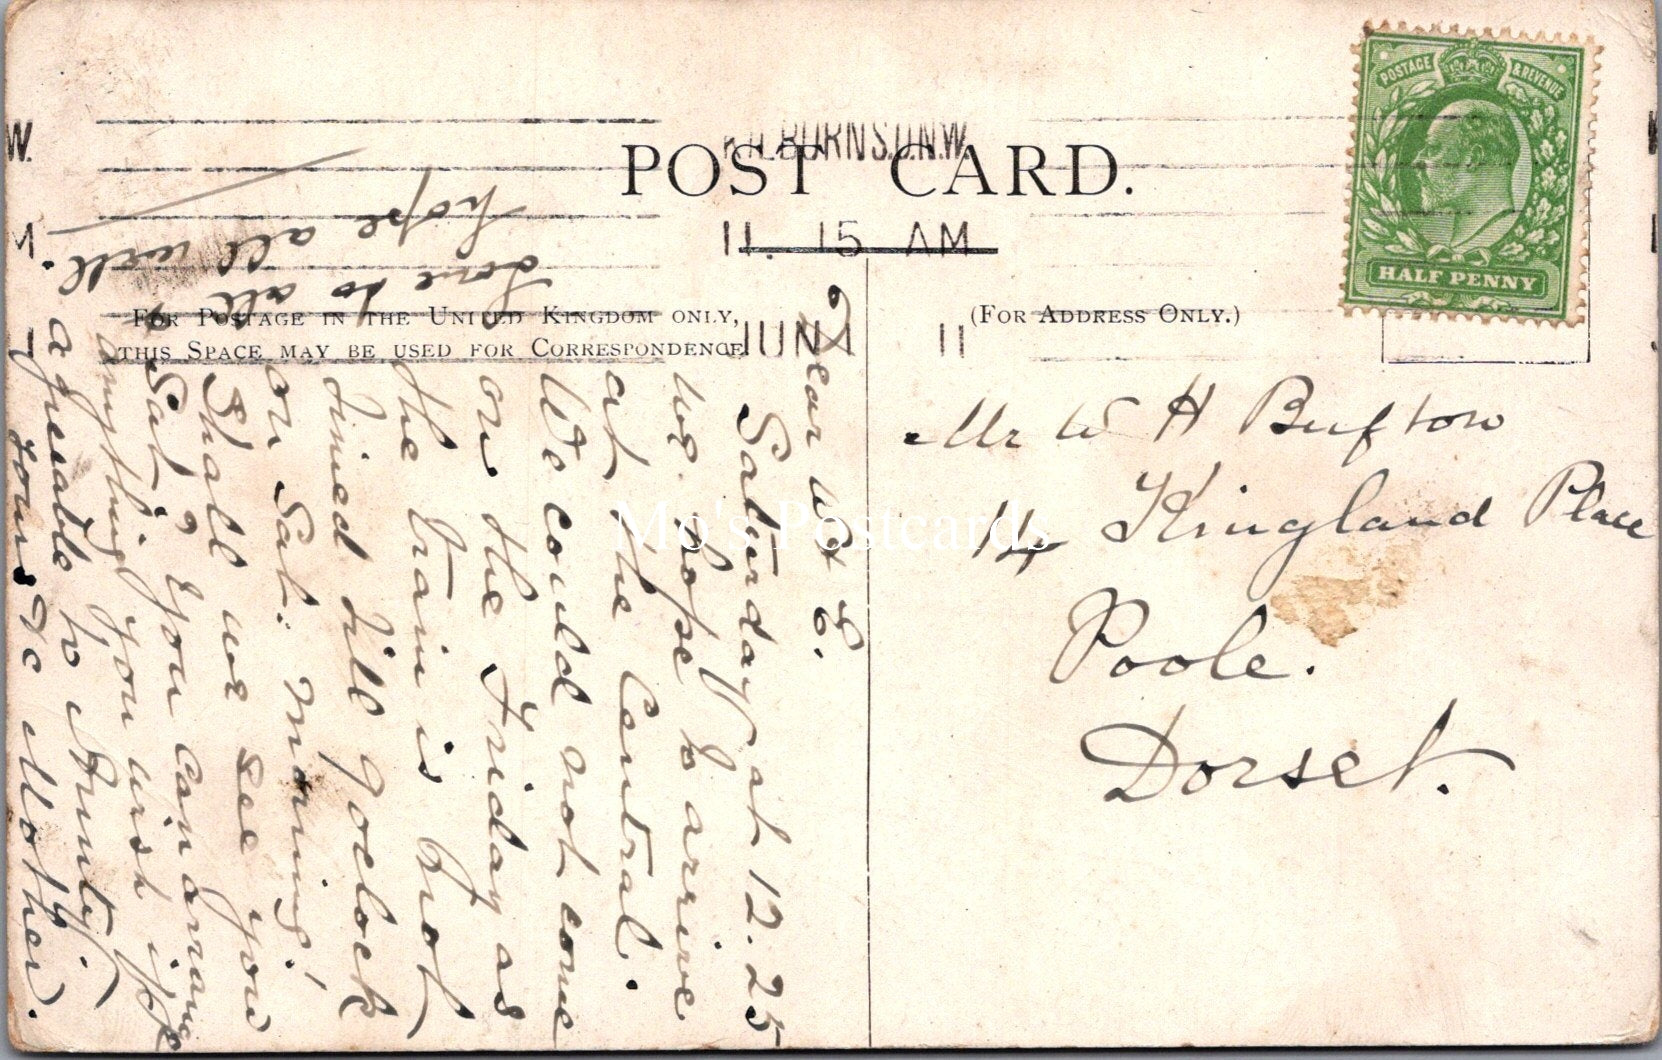 POST CARD.
KILBURN S.O. N.W.
11. 15 AM
JUN 1 11
W.
POSTAGE & REVENUE
HALF PENNY
FOR POSTAGE IN THE UNITED KINGDOM ONLY,
THIS SPACE MAY BE USED FOR CORRESPONDENCE
(FOR ADDRESS ONLY.)
Mr W H Bufton
14 Kingland Place
Poole.
Dorset.
Dear W & E.
Saturday at 12.25
we hope to arrive
at the Central.
We could not come
on the Friday as
the train is not
timed till 9 oclock
on Sat. morning,
Shall we see you
Sat? You can arrange
anything you wish if
agreeable to
yours &c Mother.
love to all &
hope all well
Mo's Postcards